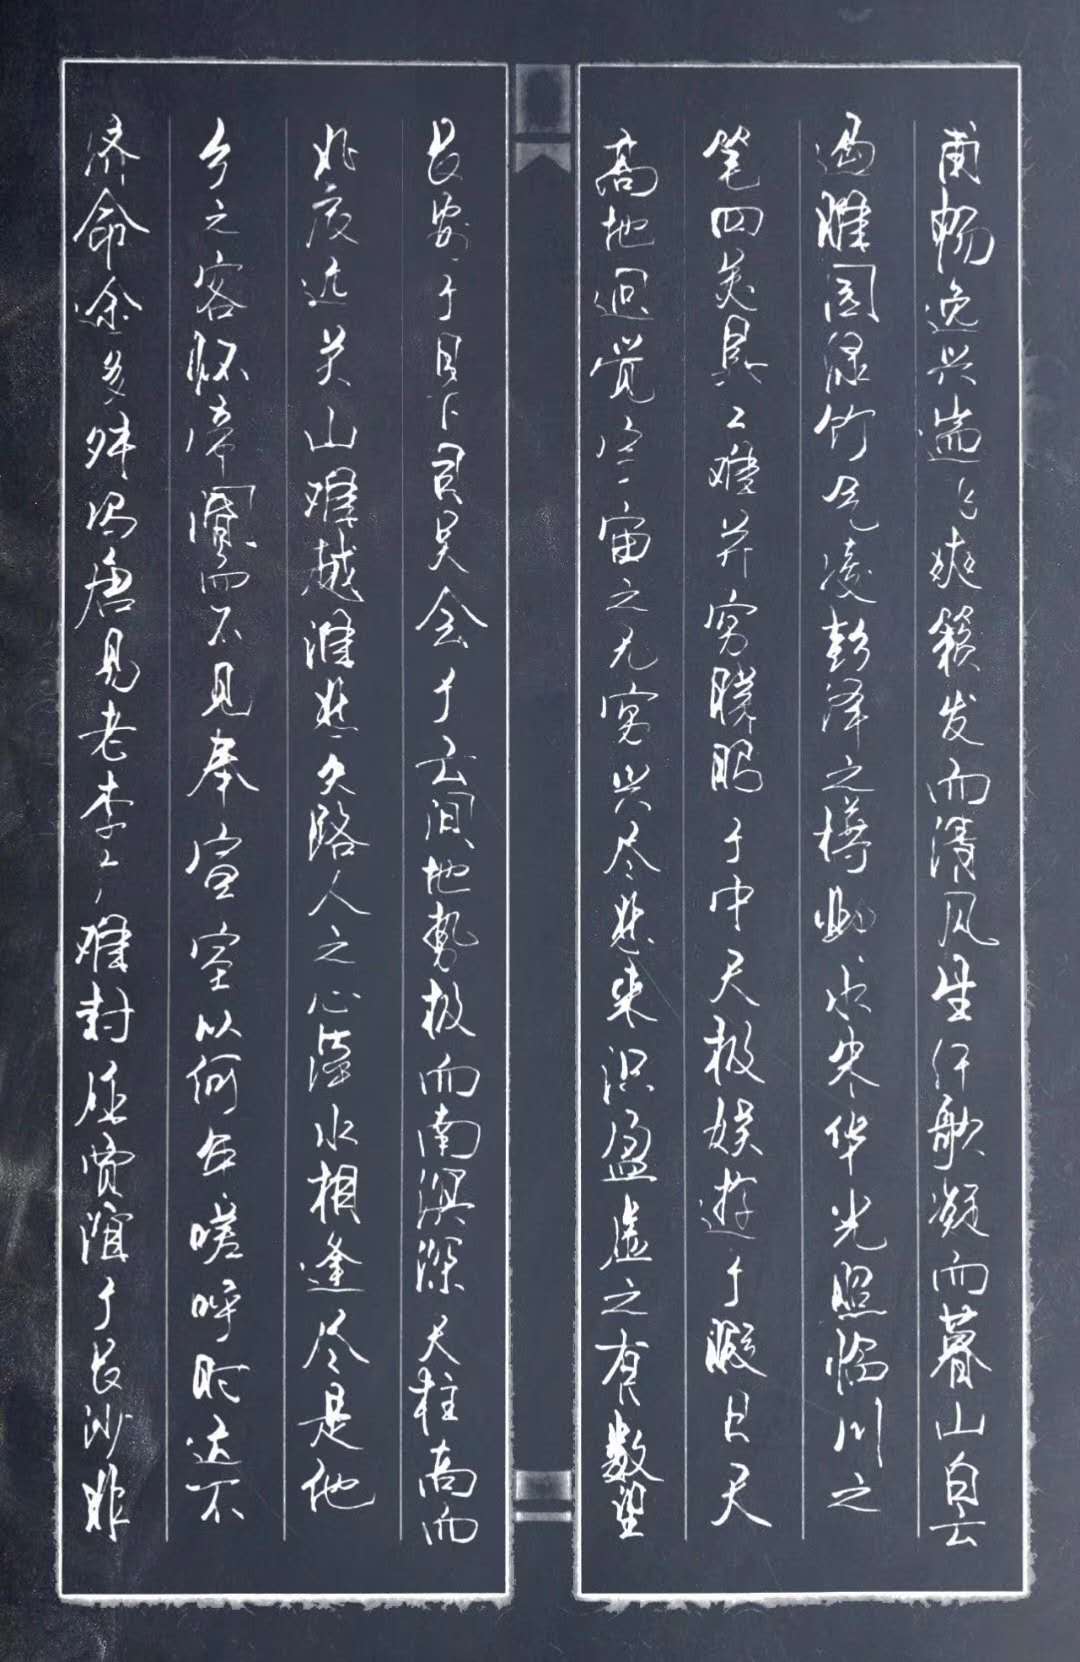 甫畅逸兴遄飞爽籁发而清风生纤歌凝而暮山白云
遏睢园绿竹气凌彭泽之樽邺水朱华光照临川之
笔四美具二难并穷睇眄于中天极娱游于暇日天
高地迥觉宇宙之无穷兴尽悲来识盈虚之有数望
长安于日下目吴会于云间地势极而南溟深天柱高而
北辰远关山难越谁悲失路人之心萍水相逢尽是他
乡之客怀帝阍而不见奉宣室以何年嗟呼时运不
济命途多舛冯唐见老李广难封屈贾谊于长沙非